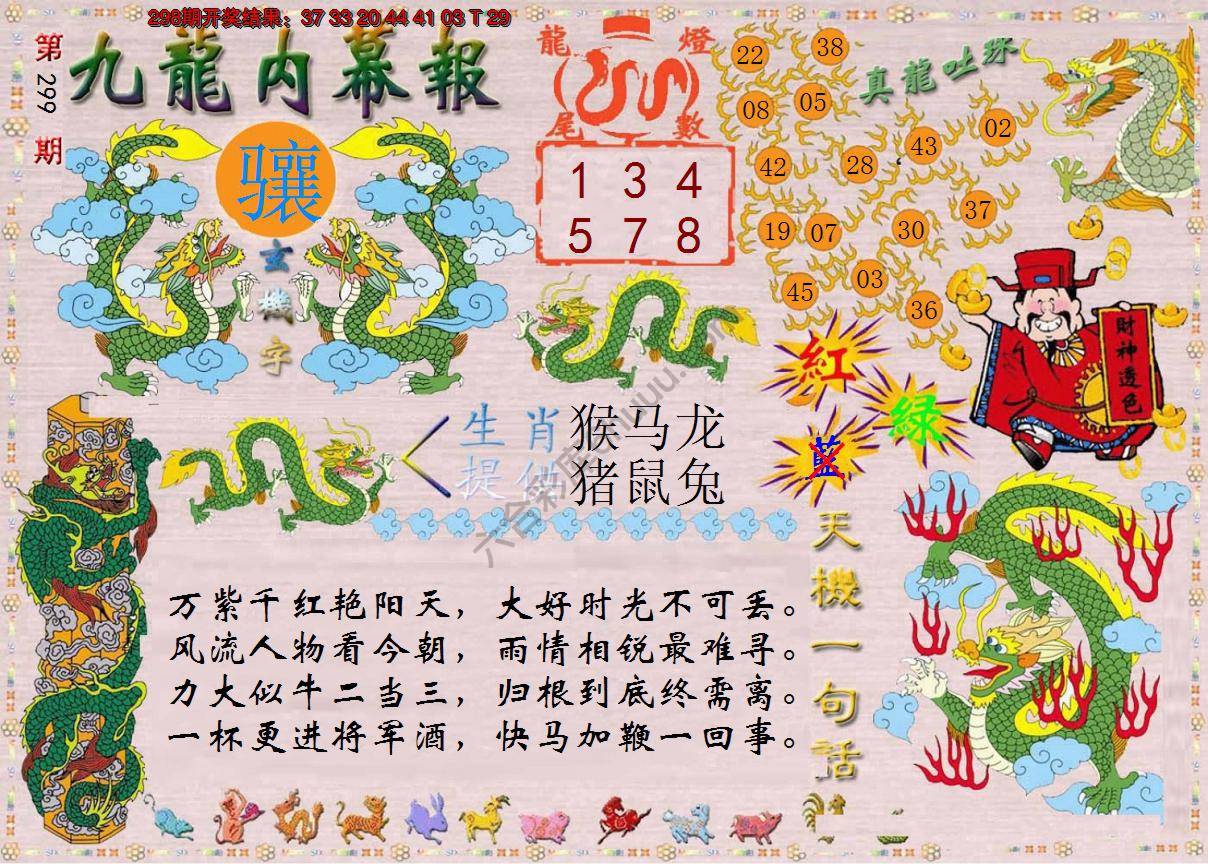 298期开奖结果：37 33 20 44 41 03 T 29
第299期
九龍内幕報
骧
玄機字
龍燈
尾數
1 3 4
5 7 8
真龍吐珠
22 38
08 05
43 02
42 28
37
19 07 30
45 03
36
財神透色
紅
綠
藍
生肖 猴马龙
提供 猪鼠兔
天機一句話
万紫千红艳阳天，大好时光不可丢。
风流人物看今朝，雨情相锐最难寻。
力大似牛二当三，归根到底终需离。
一杯更进将军酒，快马加鞭一回事。